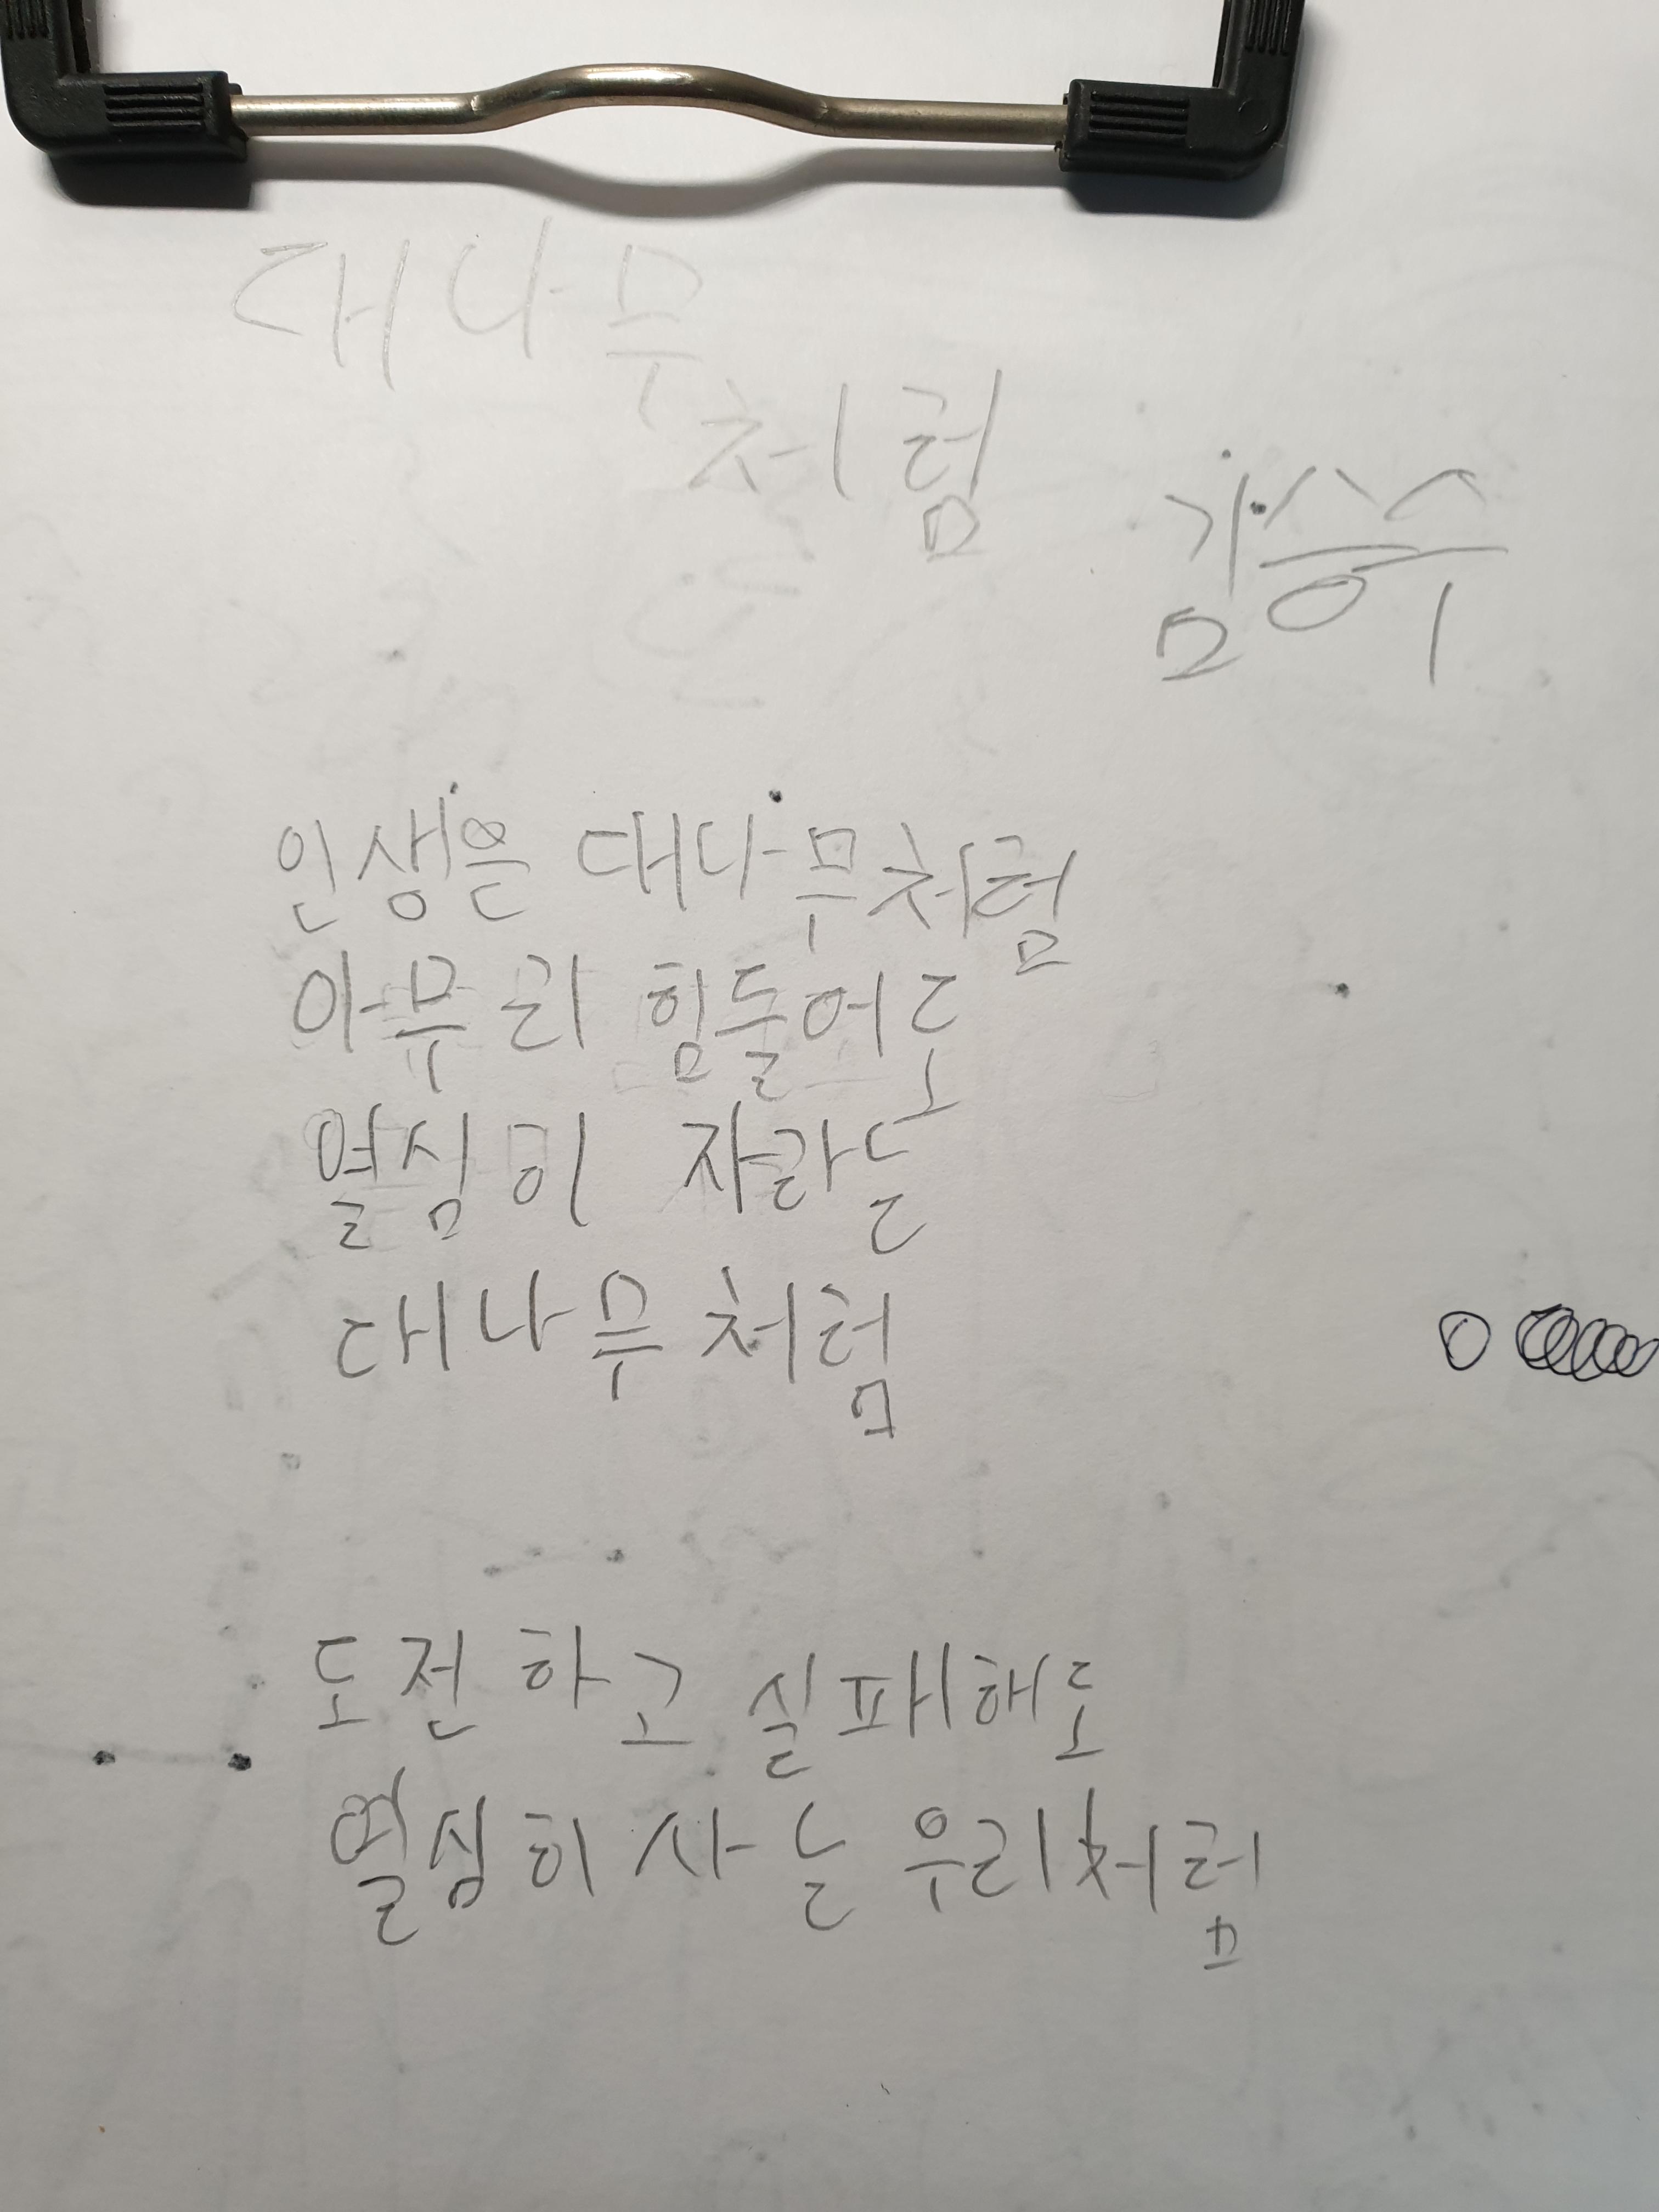 대나무
처럼
김승수
인생은 대나무처럼
아무리 힘들어도
열심히 자라는
대나무처럼
도전하고 실패해도
열심히 사는 우리처럼